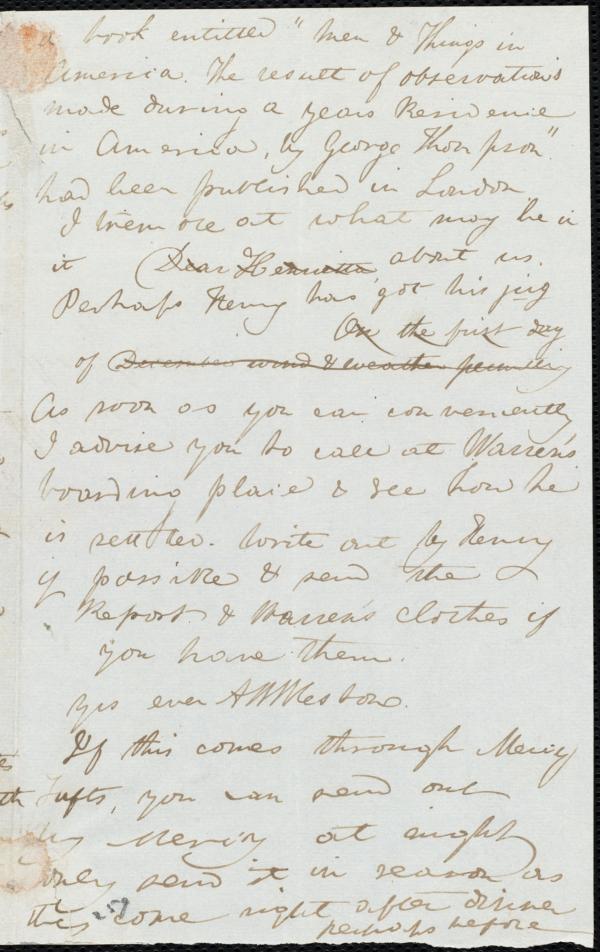 a book entitled "Men & Things in
America. The result of observations
made during a years Residence
in America, by George Thompson"
had been published in London
I tremble at what may be in
it Dear Henrietta about us.
Perhaps Henry has got his pig
On the first day
of December wind & weather permitting
As soon as you can conveniently
I advise you to call at Warren's
boarding place & see how he
is settled. Write out by Henry
if possible & send the
Report & Warren's clothes if
you have them.
yrs ever AWWeston.
If this comes through Mercy
Tufts, you can send out
by Mercy at night
only send it in season as
they come right after dinner
perhaps before